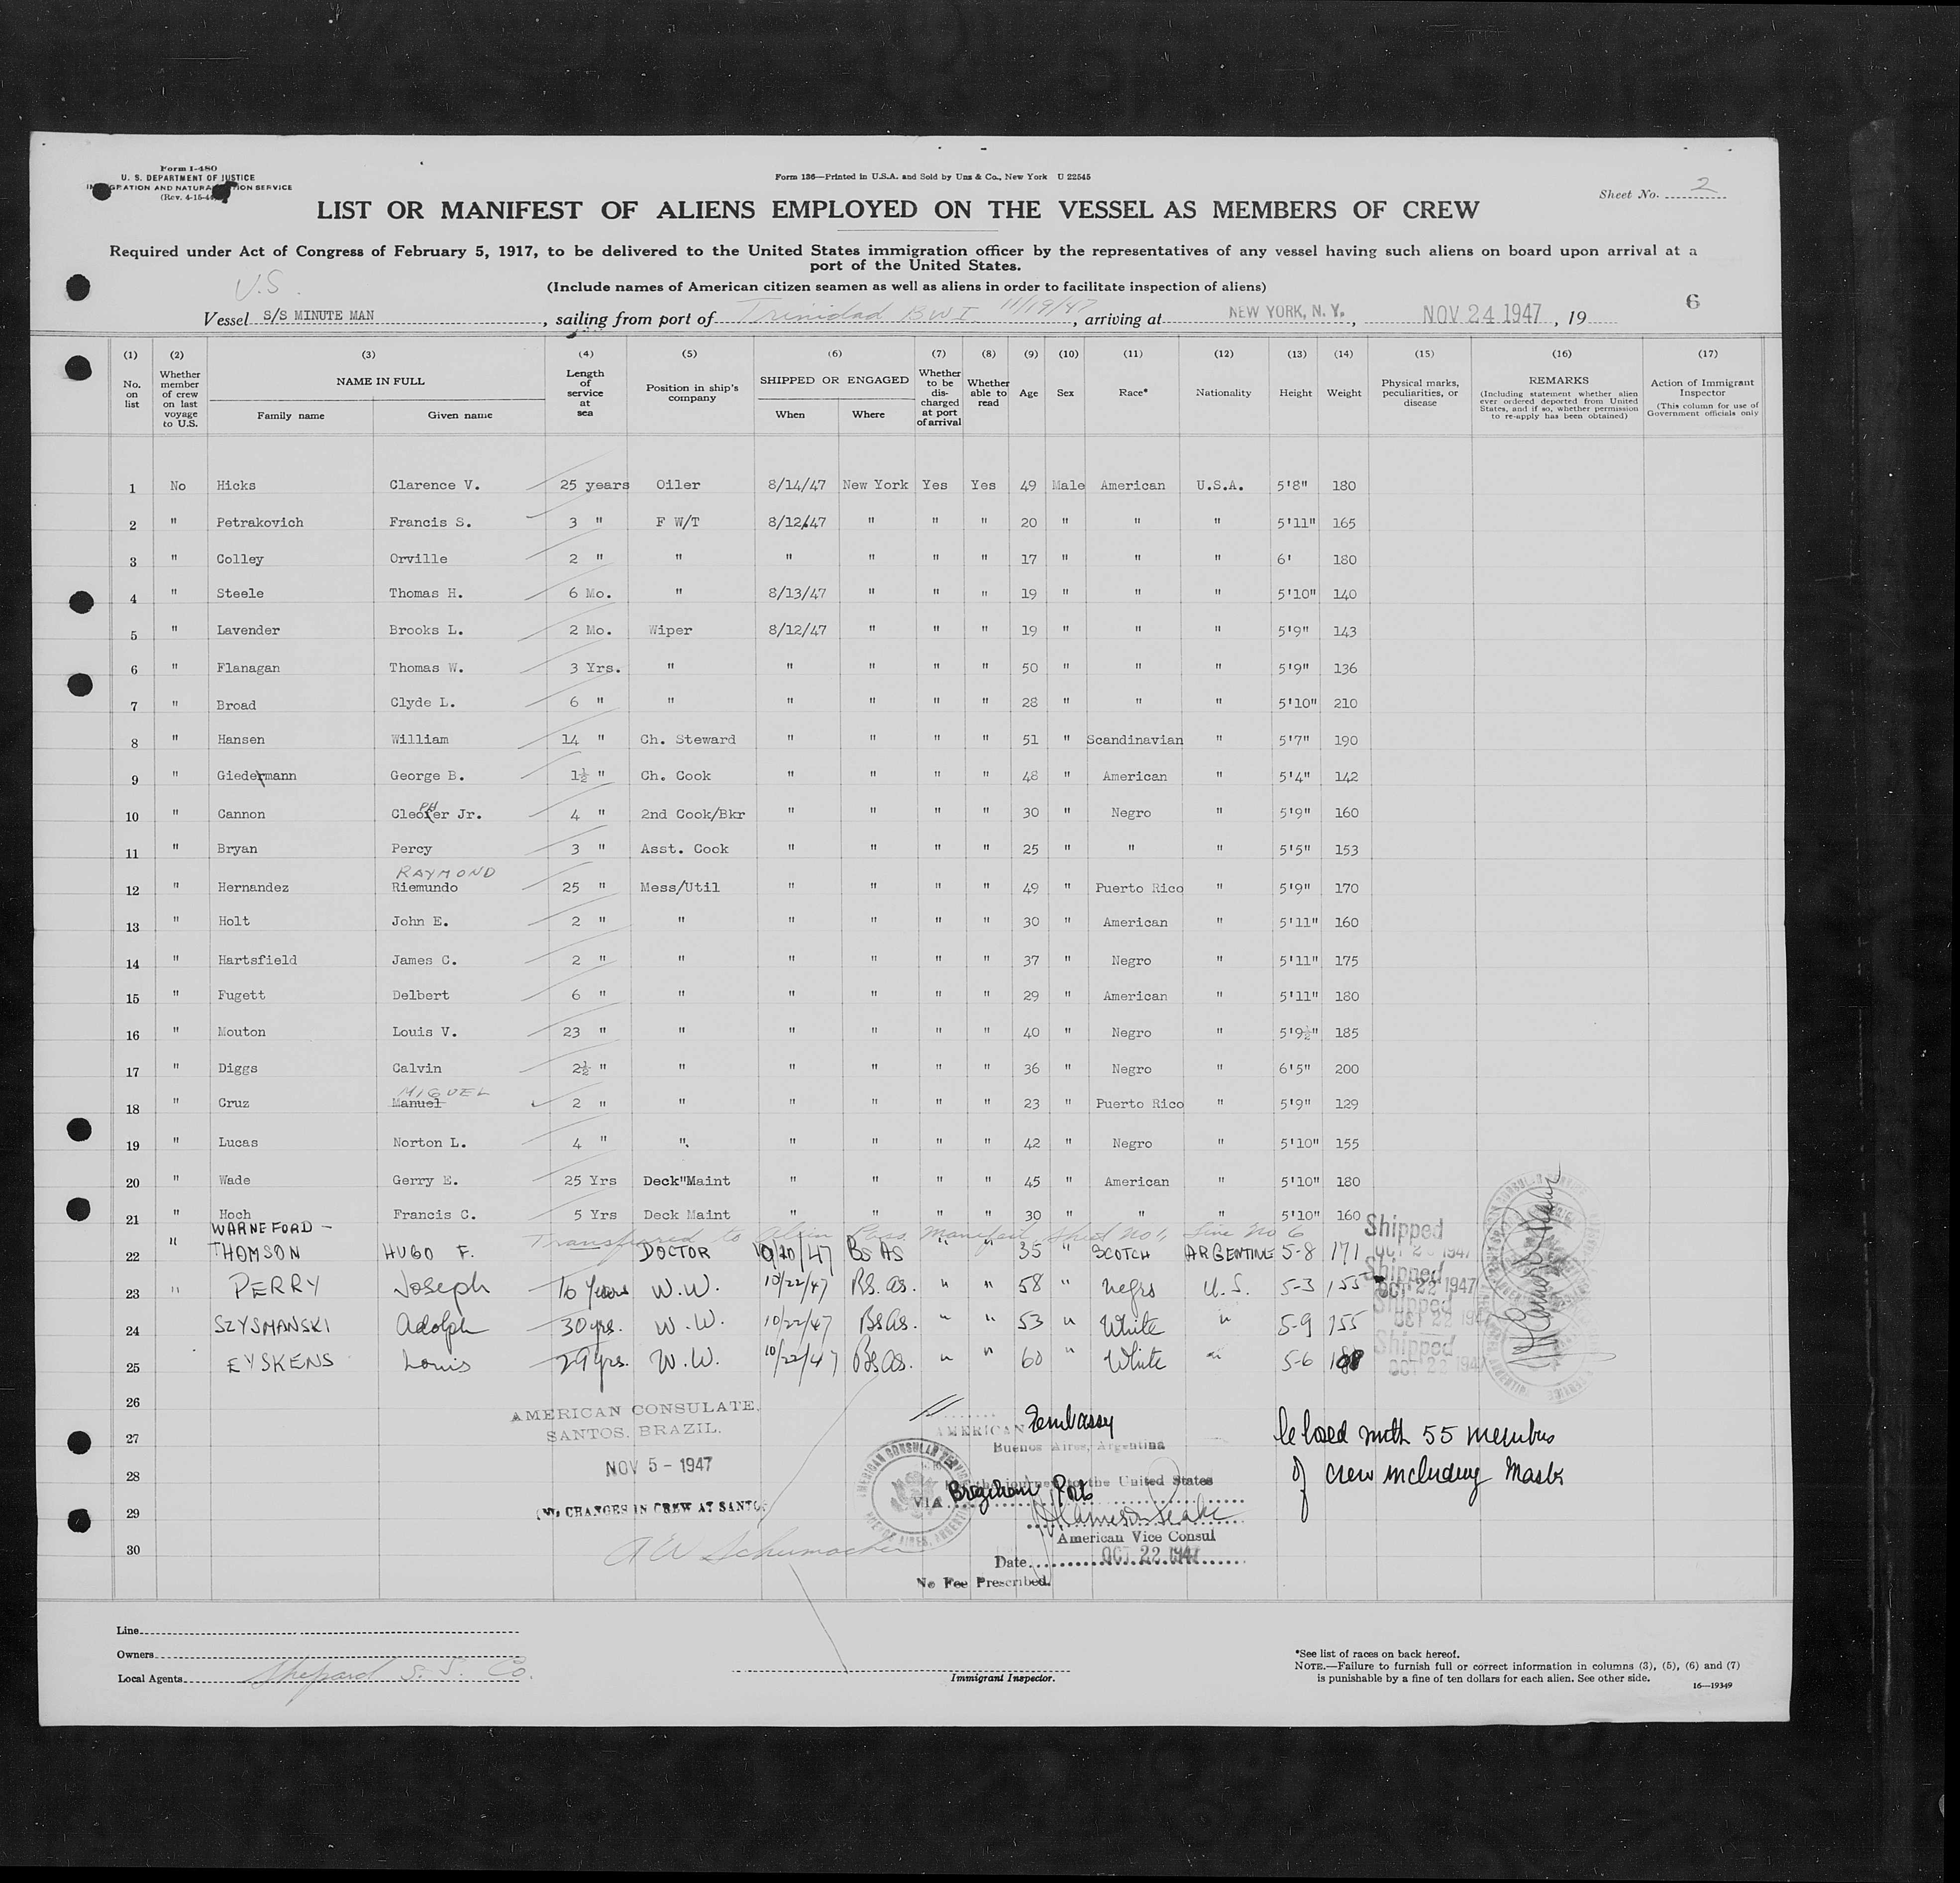 Form I-480
U. S. DEPARTMENT OF JUSTICE
IMMIGRATION AND NATURALIZATION SERVICE
(Rev. 4-15-44)
Form 136—Printed in U.S.A. and Sold by Unz & Co., New York U 22545
Sheet No. 2
LIST OR MANIFEST OF ALIENS EMPLOYED ON THE VESSEL AS MEMBERS OF CREW
Required under Act of Congress of February 5, 1917, to be delivered to the United States immigration officer by the representatives of any vessel having such aliens on board upon arrival at a
port of the United States.
(Include names of American citizen seamen as well as aliens in order to facilitate inspection of aliens)
U.S.
6
Vessel S/S MINUTE MAN, sailing from port of Trinidad BWI 11/19/47, arriving at NEW YORK, N. Y., NOV 24 1947, 19
(1) (2) (3) (4) (5) (6) (7) (8) (9) (10) (11) (12) (13) (14) (15) (16) (17)
No. on list
Whether member of crew on last voyage to U.S.
NAME IN FULL
Family name Given name
Length of service at sea
Position in ship's company
SHIPPED OR ENGAGED
When Where
Whether to be discharged at port of arrival
Whether able to read
Age
Sex
Race*
Nationality
Height
Weight
Physical marks, peculiarities, or disease
REMARKS
(Including statement whether alien ever ordered deported from United States, and if so, whether permission to re-apply has been obtained)
Action of Immigrant Inspector
(This column for use of Government officials only
1 No Hicks Clarence V. 25 years Oiler 8/14/47 New York Yes Yes 49 Male American U.S.A. 5'8" 180
2 " Petrakovich Francis S. 3 " F W/T 8/12/47 " " " 20 " " " 5'11" 165
3 " Colley Orville 2 " " " " " " 17 " " " 6' 180
4 " Steele Thomas H. 6 Mo. " 8/13/47 " " " 19 " " " 5'10" 140
5 " Lavender Brooks L. 2 Mo. Wiper 8/12/47 " " " 19 " " " 5'9" 143
6 " Flanagan Thomas W. 3 Yrs. " " " " " 50 " " " 5'9" 136
7 " Broad Clyde L. 6 " " " " " " 28 " " " 5'10" 210
8 " Hansen William 14 " Ch. Steward " " " " 51 " Scandinavian " 5'7" 190
9 " Giedermann George B. 1½ " Ch. Cook " " " " 48 " American " 5'4" 142
10 " Cannon Cleopher Jr. 4 " 2nd Cook/Bkr " " " " 30 " Negro " 5'9" 160
11 " Bryan Percy 3 " Asst. Cook " " " " 25 " " " 5'5" 153
RAYMOND
12 " Hernandez Riemundo 25 " Mess/Util " " " " 49 " Puerto Rico " 5'9" 170
13 " Holt John E. 2 " " " " " " 30 " American " 5'11" 160
14 " Hartsfield James C. 2 " " " " " " 37 " Negro " 5'11" 175
15 " Fugett Delbert 6 " " " " " " 29 " American " 5'11" 180
16 " Mouton Louis V. 23 " " " " " " 40 " Negro " 5'9½" 185
17 " Diggs Calvin 2½ " " " " " " 36 " Negro " 6'5" 200
MIGUEL
18 " Cruz Manuel 2 " " " " " " 23 " Puerto Rico " 5'9" 129
19 " Lucas Norton L. 4 " " " " " " 42 " Negro " 5'10" 155
20 " Wade Gerry E. 25 Yrs Deck"Maint " " " " 45 " American " 5'10" 180
21 " Hoch Francis C. 5 Yrs Deck Maint " " " " 30 " " " 5'10" 160
Transferred to Alien Pass. Manifest, Sheet No 1, Line No 6
22 " WARNEFORD - THOMSON HUGO F. DOCTOR /47 BS AS " " 35 " SCOTCH ARGENTINE 5-8 171
23 " PERRY Joseph 16 Years W.W. 10/22/47 Bs. as. " " 58 " negro U.S. 5-3 155
24 SZYSMANSKI Adolph 30 yrs. W.W. 10/22/47 BsAs. " " 53 " White " 5-9 155
25 EYSKENS Louis 29 yrs. W.W. 10/22/47 Bs.as. " " 60 " White " 5-6
Shipped
OCT 22 1947
Shipped
OCT 22 1947
Shipped
OCT 22 1947
Shipped
OCT 22 1947
26
27
28
29
30
AMERICAN CONSULATE,
SANTOS, BRAZIL.
NOV 5 - 1947
NO CHANGES IN CREW AT SANTOS
A W Schumacher
AMERICAN Embassy
Buenos Aires, Argentina
journey to the United States
VIA Brazilian Ports
American Vice Consul
Date OCT 22 1947
No Fee Prescribed.
AMERICAN CONSULAR SERVICE
BUENOS AIRES, ARGENTINA
with 55 members
of crew including Master
Line
Owners
Local Agents Shepard S. S. Co.
Immigrant Inspector.
*See list of races on back hereof.
NOTE.—Failure to furnish full or correct information in columns (3), (5), (6) and (7)
is punishable by a fine of ten dollars for each alien. See other side.
16—19349